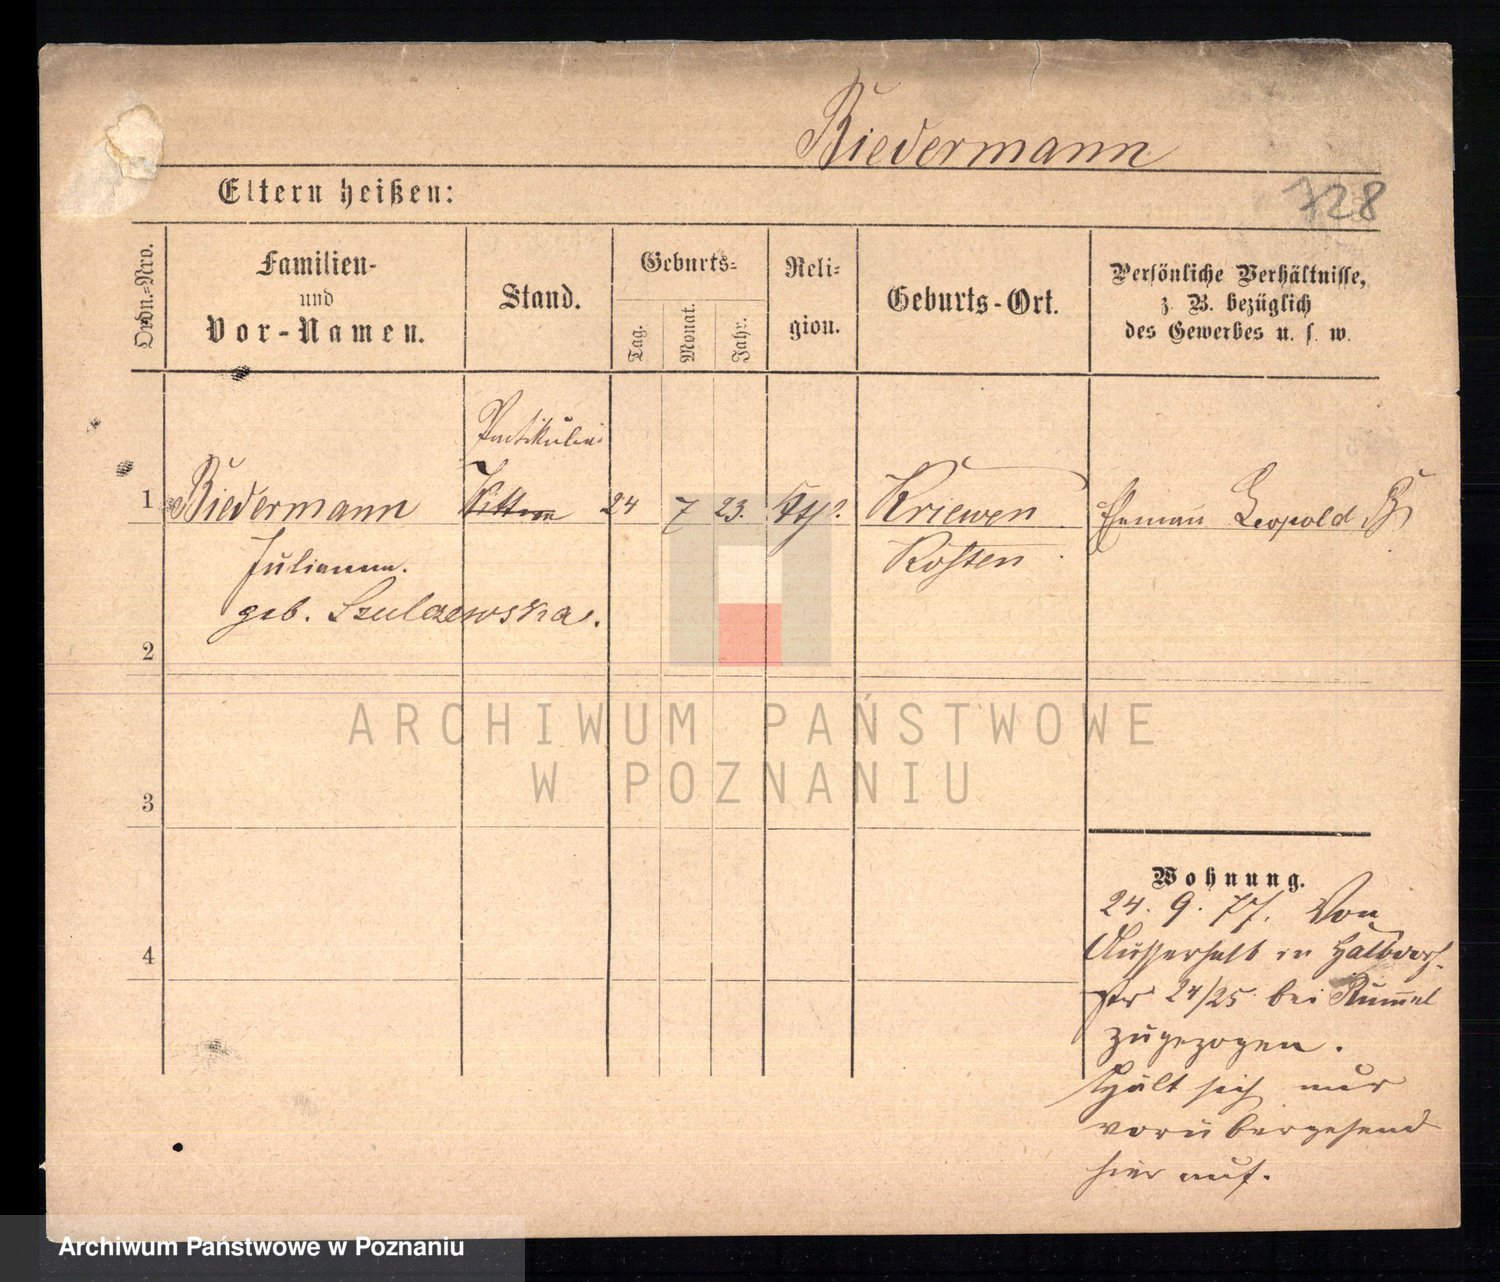 Biedermann
Eltern heißen:
728
Ordn.-Nro.
Familien-
und
Vor-Namen.
Stand.
Geburts-
Tag.
Monat.
Jahr.
Reli-
gion.
Geburts-Ort.
Persönliche Verhältnisse,
z. B. bezüglich
des Gewerbes u. s. w.
1
Biedermann
Julianna.
geb. Szulczewska.
24
7
23.
Kriewen
Kosten
Ehemann Leopold B
2
3
4
Wohnung.
24. 9. 77. Von
Ausserhalb in Halbdorf-
str 24/25 bei Rum̄el
zugezogen.
Hält sich nur
vorübergehend
hier auf.
ARCHIWUM PAŃSTWOWE
W POZNANIU
Archiwum Państwowe w Poznaniu